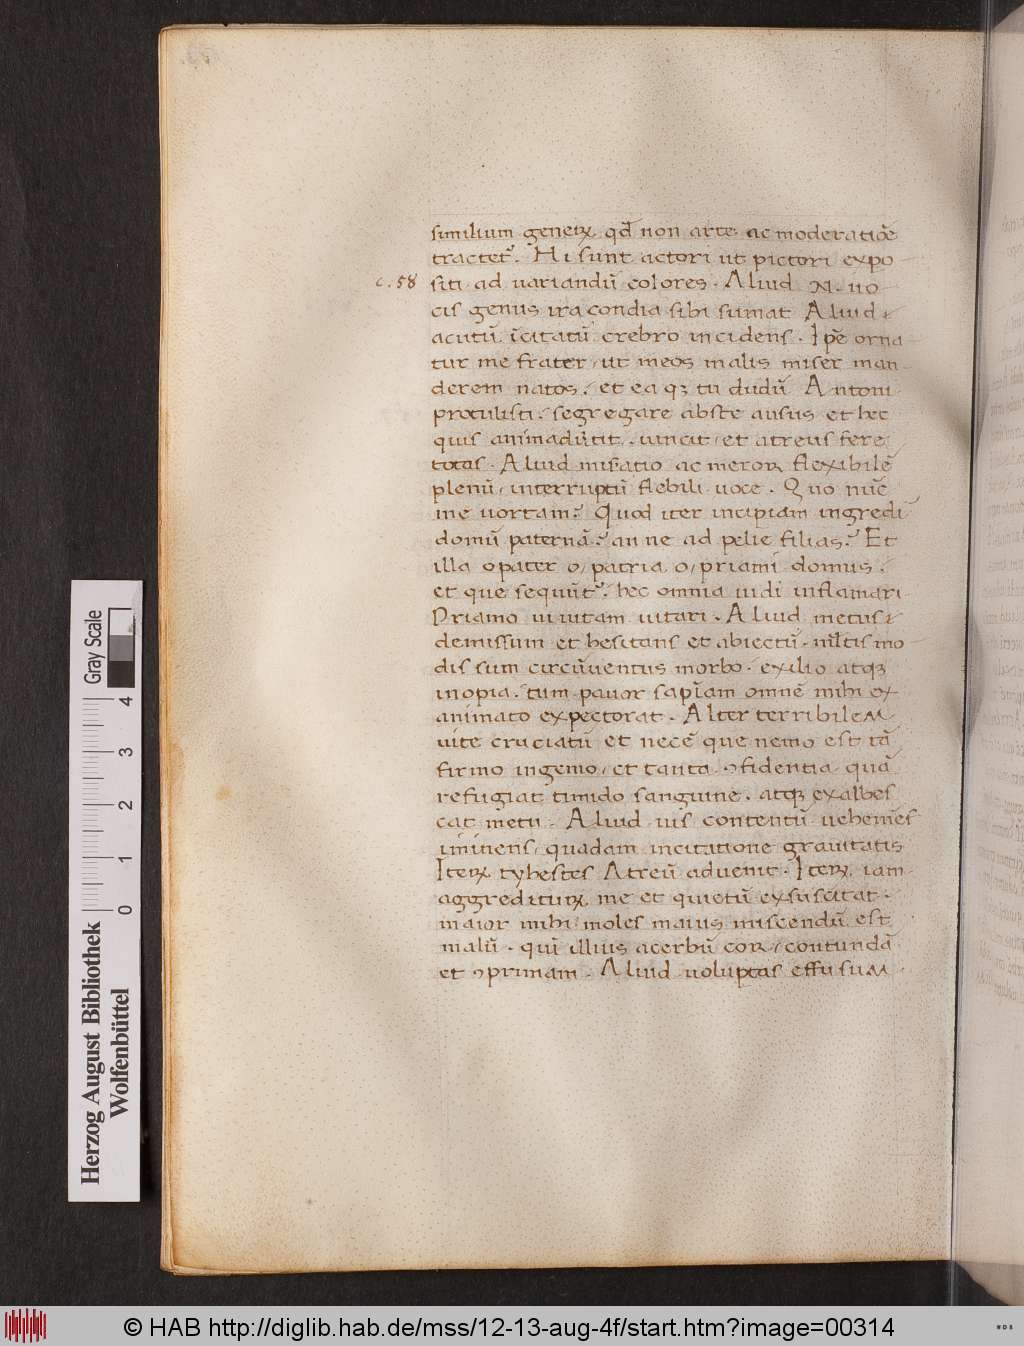 similium generꝝ qđ non arte ac moderatiōe
tractet᷒. Hi sunt actori ut pictori expo
c. 58 siti ad uariandū colores. Aliud .N. uo
cis genus iracondia sibi sumat Aliud
acutū īcitatū crebro incidens. Ipē orna
tur me frater ut meos malis miser man
derem natos. et ea qȝ tu dudū Antoni
protulisti segregare abste ausus et hec
quis animadūtit. uincit et atreus fere
totas. Aliud misatio ac meror flexibilē
plenū interruptū flebili uoce. Quo nūc
me uortam? Quod iter incipiam ingredi
domū paternā? an ne ad pelie filias? Et
illa o pater o patria o priami domus.
et que sequūt᷒. hec omnia uidi inflamari
Priamo ui uitam uitari. Aliud metus
demissum et hesitans et abiectū. mltis mo
dis sum circūuentus morbo. exilio atqȝ
inopia. tum pauor sapīam omnē mihi ex
animato expectorat. Alter terribilem
uite cruciatū et necē que nemo est tā
firmo ingenio et tanta ꝯfidentia quā
refugiat timido sanguine. atqȝ exalbes
cat metu. Aliud uis contentū uehemēs
iminens quadam incitatione grauitatis
Iterꝝ tyhestes Atreū aduenit. Iterꝝ iam
aggreditur me et quietū exsuscitat.
maior mihi moles maius miscendū est
malū. qui illius acerbū cor contundā
et ꝯprimam. Aliud uoluptas effusum
Gray Scale
0 1 2 3 4
Herzog August Bibliothek
Wolfenbüttel
© HAB http://diglib.hab.de/mss/12-13-aug-4f/start.htm?image=00314